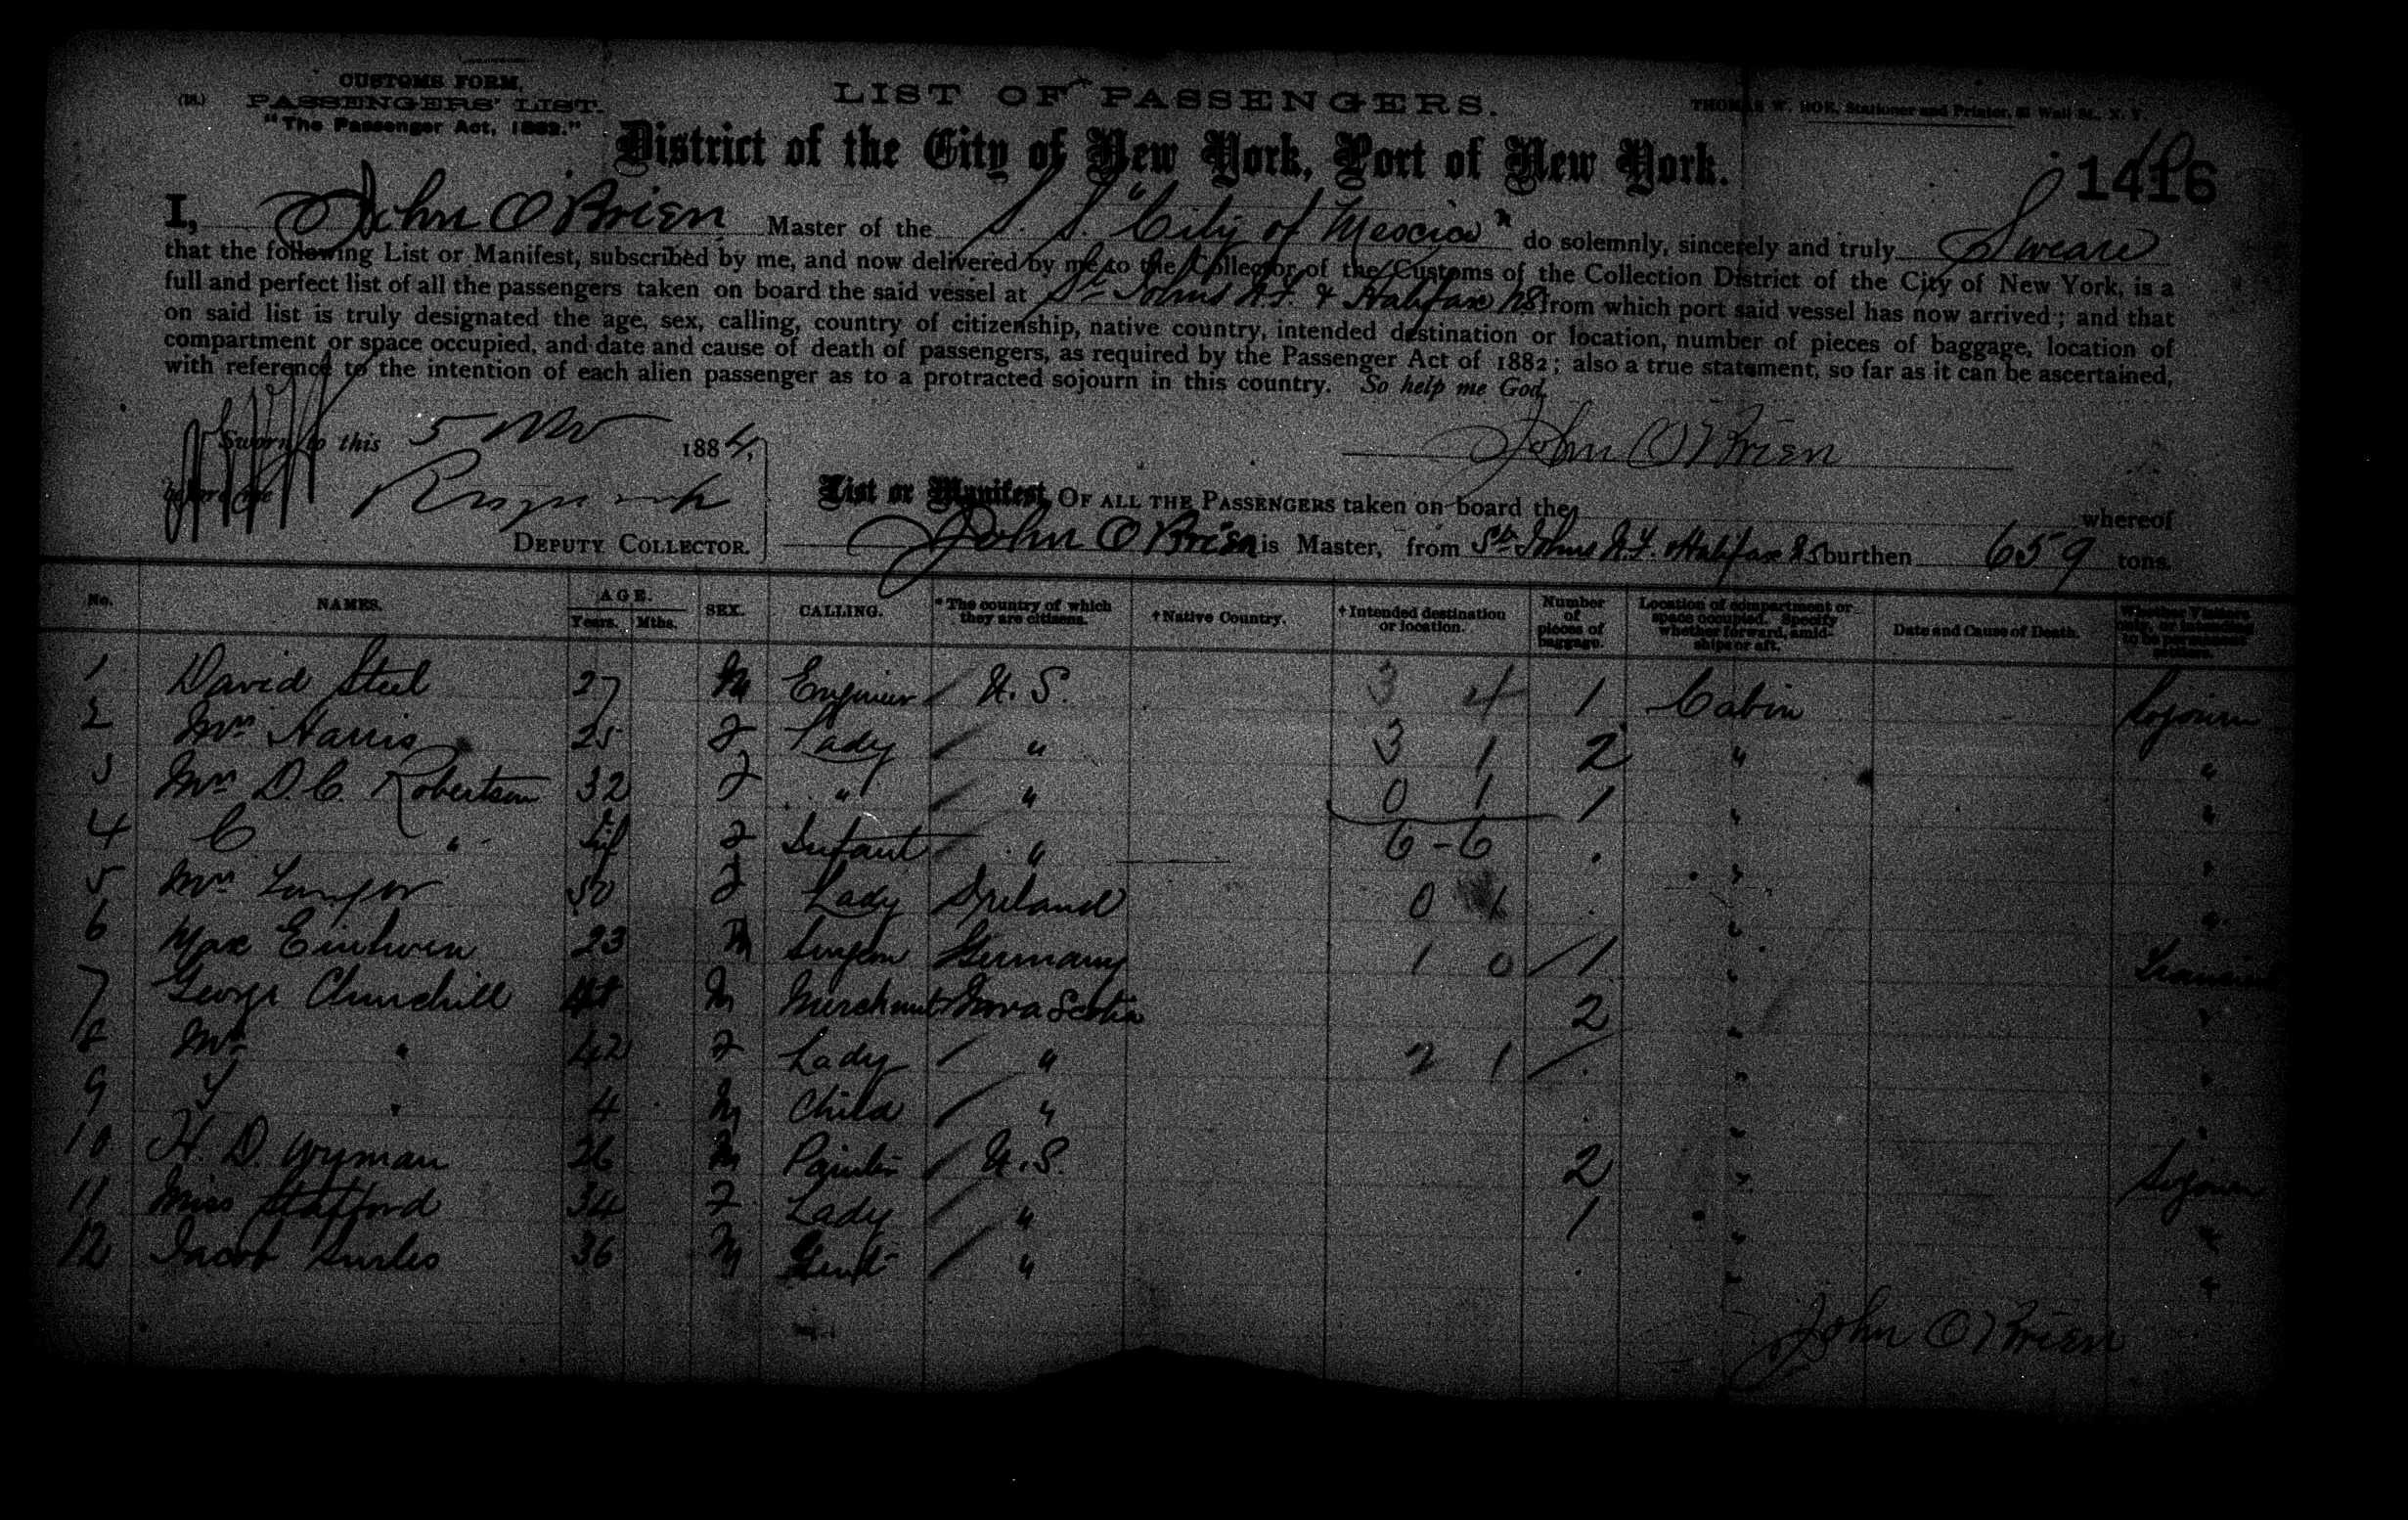 CUSTOMS FORM.
PASSENGERS' LIST.
"The Passenger Act, 1882."
LIST OF PASSENGERS.
THOMAS W. HOE, Stationer and Printer, Wall St., N. Y.
District of the City of New York, Port of New York.
1416
I, John O'Brien Master of the S. S. "City of Mexico" do solemnly, sincerely and truly Sweare
that the following List or Manifest, subscribed by me, and now delivered by me to the Collector of the Customs of the Collection District of the City of New York, is a
full and perfect list of all the passengers taken on board the said vessel at St. Johns N.F. & Halifax NS from which port said vessel has now arrived; and that
on said list is truly designated the age, sex, calling, country of citizenship, native country, intended destination or location, number of pieces of baggage, location of
compartment or space occupied, and date and cause of death of passengers, as required by the Passenger Act of 1882; also a true statement, so far as it can be ascertained,
with reference to the intention of each alien passenger as to a protracted sojourn in this country. So help me God,
Sworn to this 5 Nov 1884,
John O'Brien
before me
DEPUTY COLLECTOR.
List or Manifest, OF ALL THE PASSENGERS taken on board the whereof
John O'Brien is Master, from St. Johns N.F. Halifax NS burthen 659 tons.
No. NAMES. AGE. Years. Mths. SEX. CALLING. *The country of which they are citizens. †Native Country. †Intended destination or location. Number of pieces of baggage. Location of compartment or space occupied. Specify whether forward, amidships or aft. Date and Cause of Death.
1 David Steel 27 M Engineer U.S. 3 4 1 Cabin Sojourn
2 Mrs Harris 25 F Lady " 3 1 2 " "
3 Mrs D. C. Robertson 32 F " " 0 1 1 " "
4 C " Inf F Infant " 6-6 " "
5 Mrs 50 F Lady Ireland 0 1 " "
6 Max 23 M Surgeon Germany 1 0 1 " Transient
7 George Churchill M Merchant Nova Scotia 2 " "
8 Mrs " 42 F Lady " 2 1 " "
9 " 4 M Child " " "
10 H. D. Wyman 26 M Painter U.S. 2 " Sojourn
11 Miss Stafford 34 F Lady " 1 " "
12 Jacob 36 M Gent " " "
John O'Brien